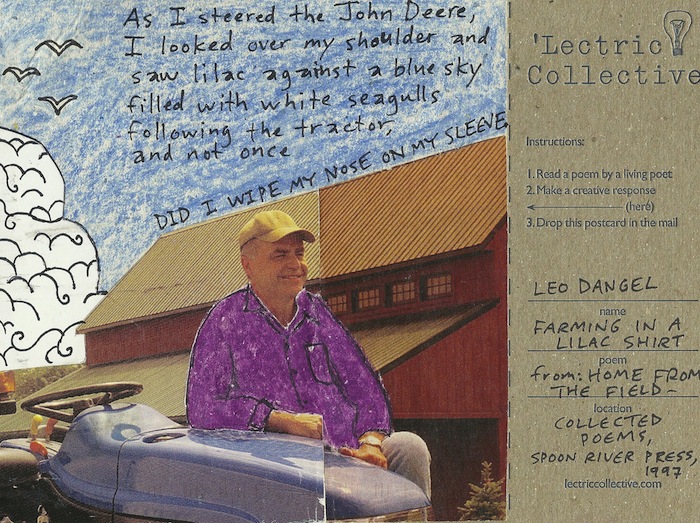 As I steered the John Deere,
I looked over my shoulder and
saw lilac against a blue sky
filled with white seagulls
following the tractor,
and not once
DID I WIPE MY NOSE ON MY SLEEVE
'Lectric
Collective
Instructions:
1. Read a poem by a living poet
2. Make a creative response
(here)
3. Drop this postcard in the mail
LEO DANGEL
name
FARMING IN A
LILAC SHIRT
poem
from: HOME FROM
THE FIELD-
location
COLLECTED
POEMS,
SPOON RIVER PRESS,
1997
lectriccollective.com